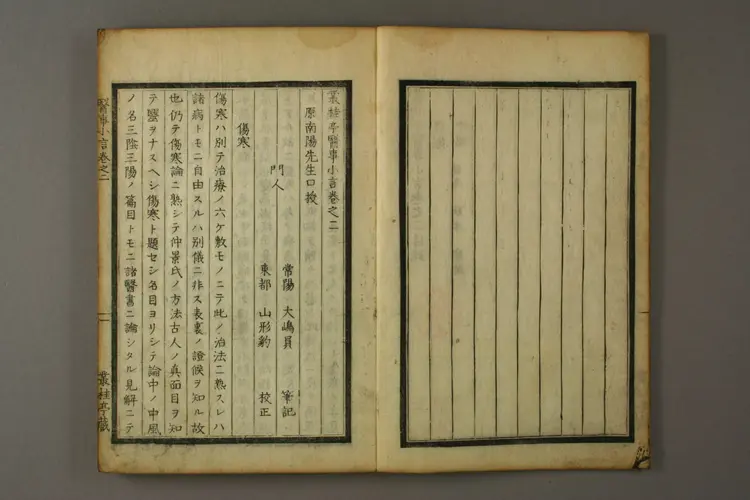 叢桂亭醫事小言卷之二
原南陽先生口授
門人
常陽 大嶋貞 筆記
東都 山形豹 校正
傷寒
傷寒ハ別テ治療ノ六ケ敷モノニテ此ノ治法ニ熟スレハ
諸病トモニ自由スルハ別儀ニ非ス表裏ノ證候ヲ知ル故
也仍テ傷寒論ニ熟シテ仲景氏ノ方法古人ノ真面目ヲ知
テ醫ヲナスヘシ傷寒ト題セシ名目ヨリシテ論中ノ中風
ノ名三陰三陽ノ篇目トモニ諸醫書ニ論シタル見解ニテ
醫事小言卷之二
一
叢桂亭藏